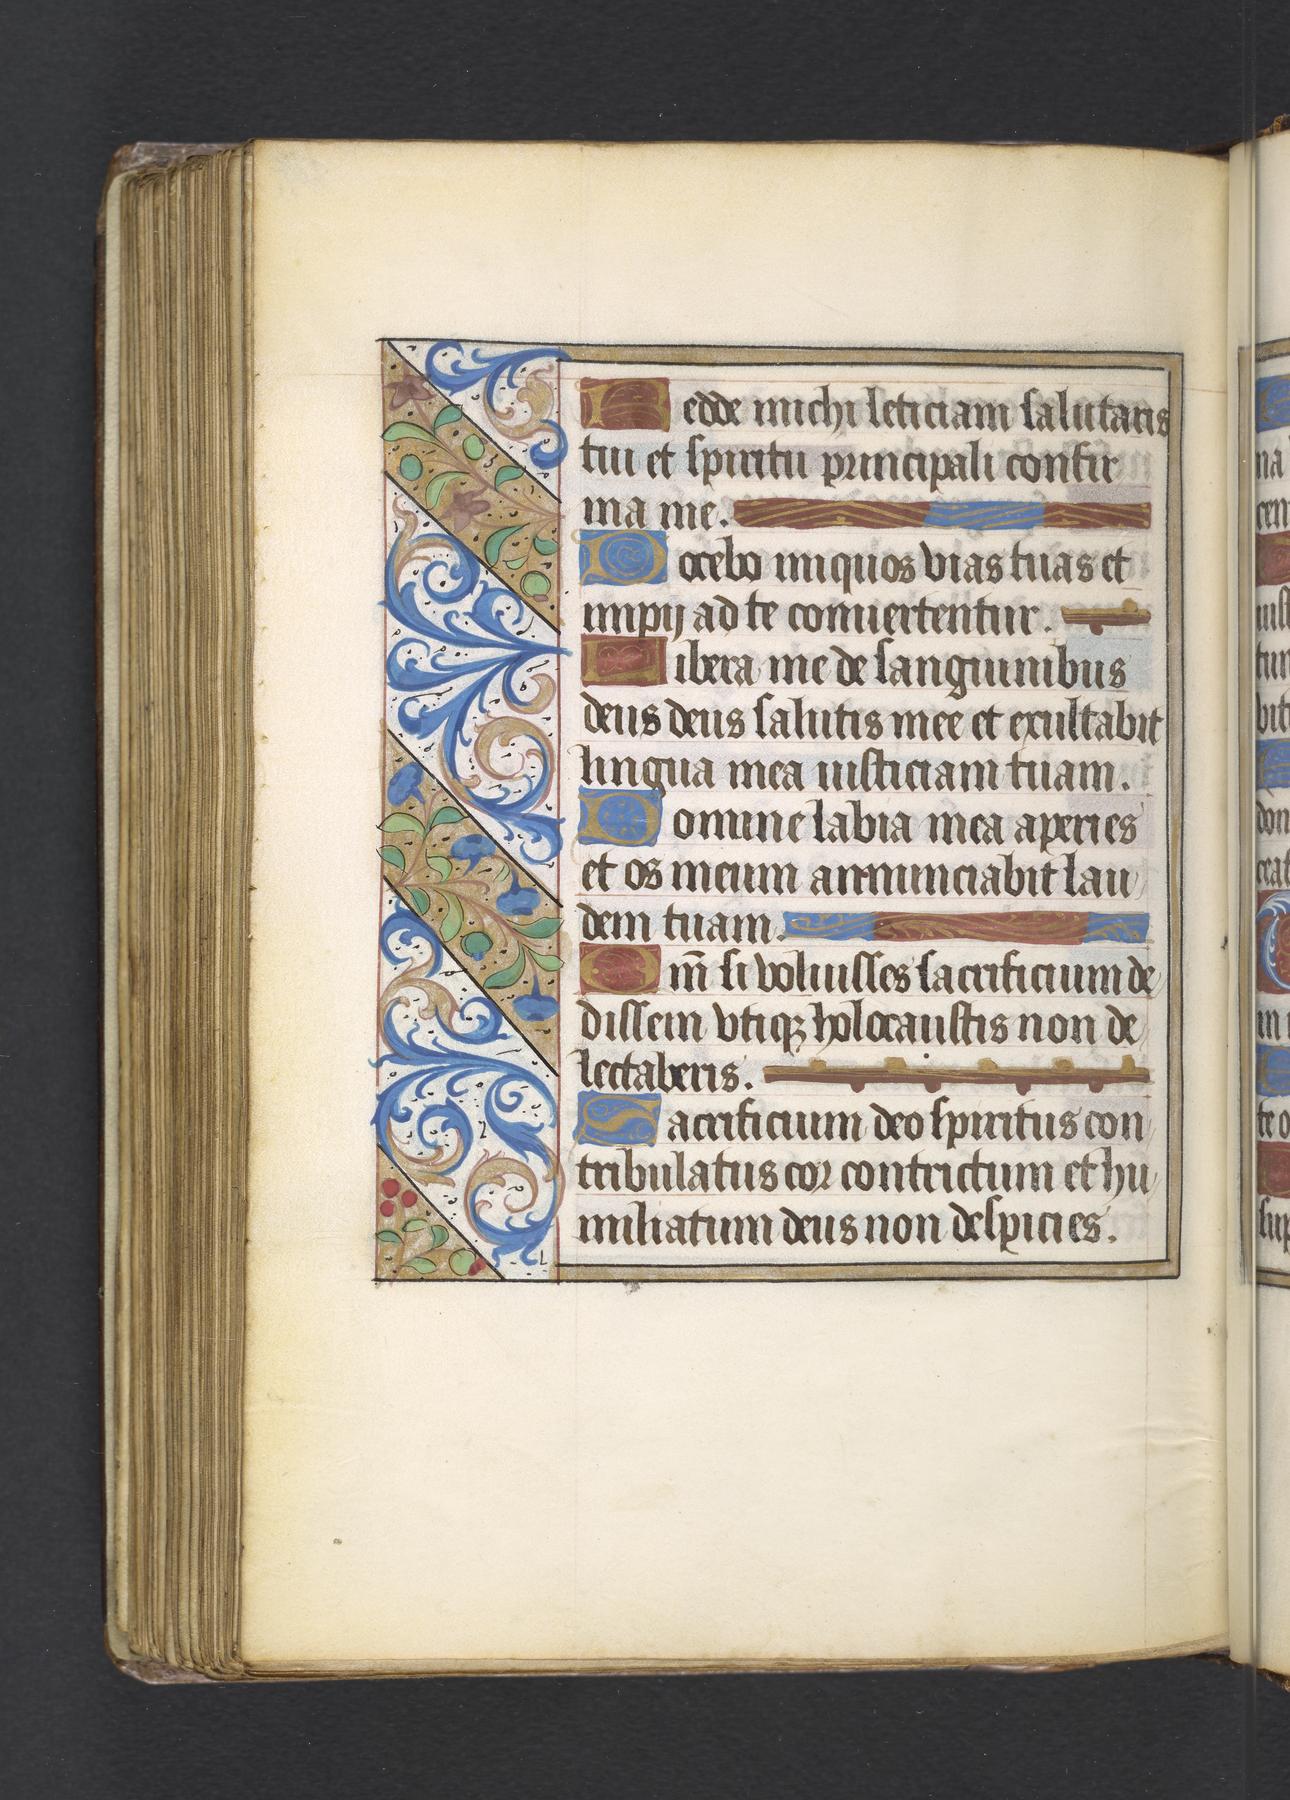 Redde michi leticiam salutaris
tui et spiritu principali confir
ma me.
Docebo iniquos vias tuas et
impij ad te conuertentur.
Libera me de sanguinibus
deus deus salutis mee et exultabit
lingua mea iusticiam tuam.
Domine labia mea aperies
et os meum annunciabit lau
dem tuam.
Qm̄ si voluisses sacrificium de
dissem vtiqꝫ holocaustis non de
lectaberis.
Sacrificium deo spiritus con
tribulatus cor contrictum et hu
miliatum deus non despicies.